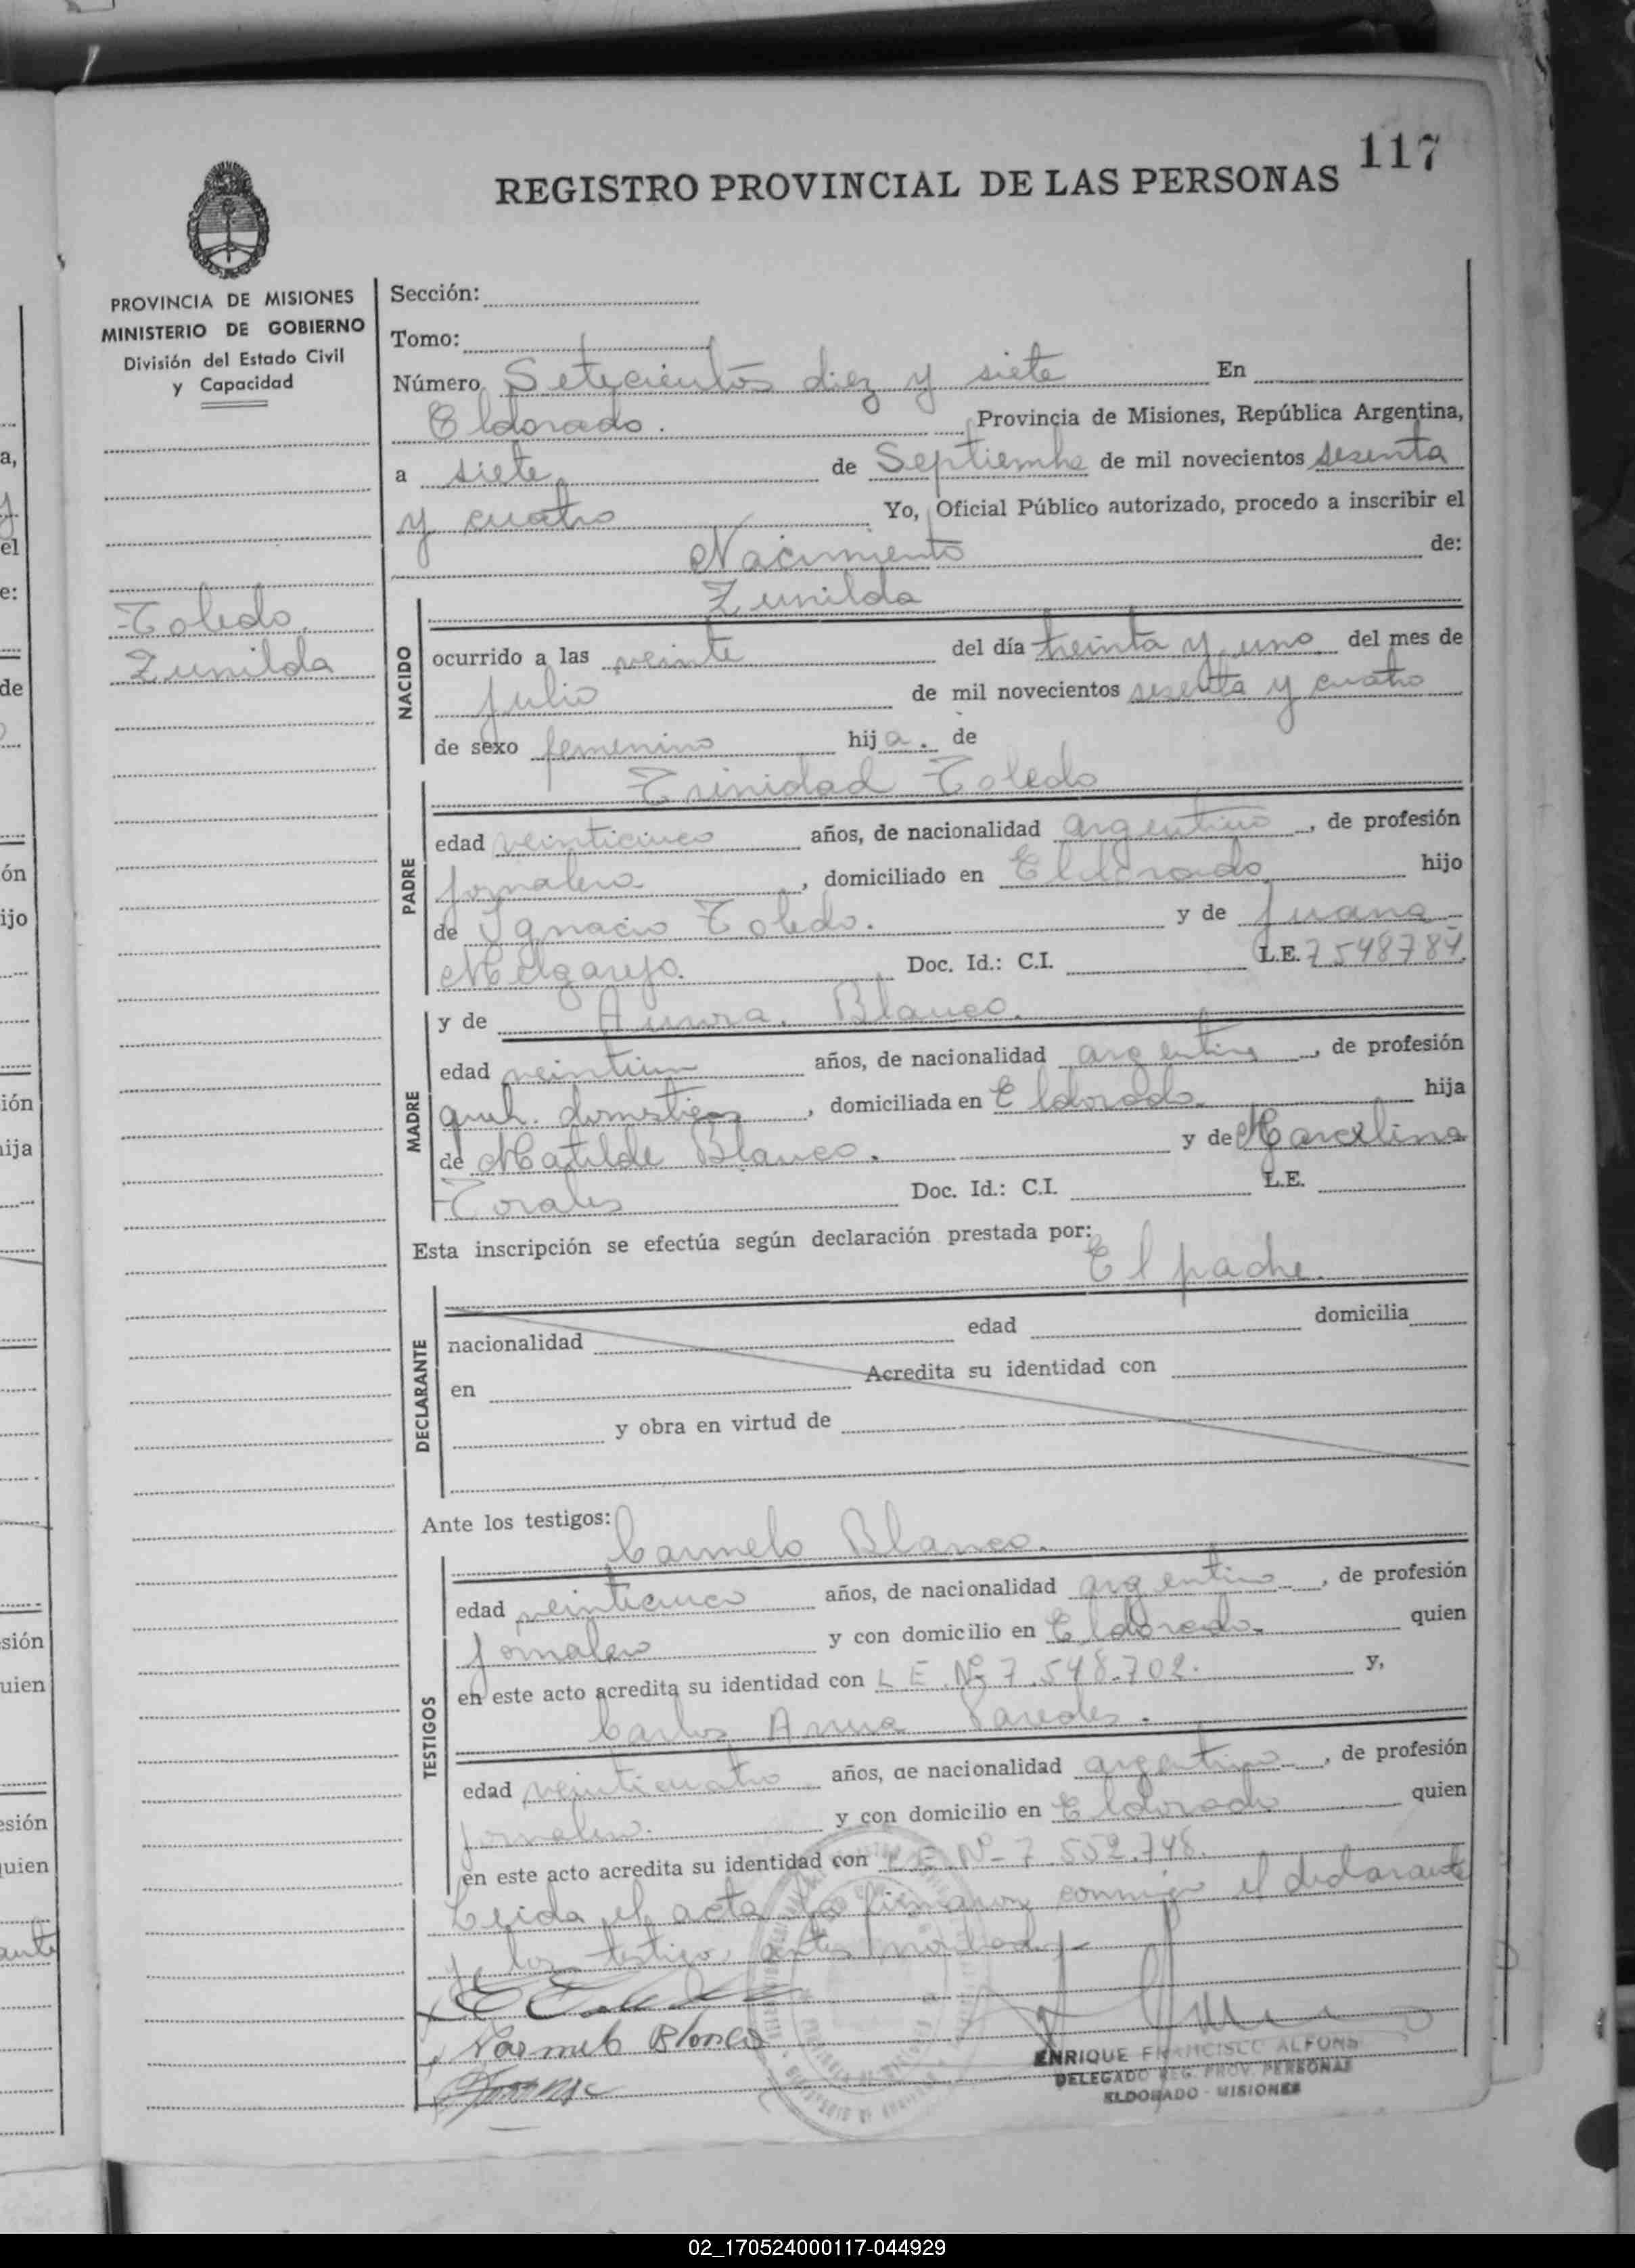 117
REGISTRO PROVINCIAL DE LAS PERSONAS
PROVINCIA DE MISIONES
MINISTERIO DE GOBIERNO
División del Estado Civil
y Capacidad
Toledo
Zunilda
Sección:
Tomo:
Número Setecientos diez y siete En
Eldorado. Provincia de Misiones, República Argentina,
a siete de Septiembre de mil novecientos sesenta
y cuatro Yo, Oficial Público autorizado, procedo a inscribir el
Nacimiento de:
Zunilda
NACIDO
ocurrido a las veinte del día treinta y uno del mes de
julio de mil novecientos sesenta y cuatro
de sexo femenino hija. de
Trinidad Toledo
PADRE
edad veinticinco años, de nacionalidad argentino, de profesión
jornalero, domiciliado en Eldorado hijo
de Ignacio Toledo. y de Juana
Melgarejo. Doc. Id.: C.I. L.E. 7548787
y de Aurora Blanco.
MADRE
edad años, de nacionalidad argentina, de profesión
queh. domesticos, domiciliada en Eldorado. hija
de Matilde Blanco. y de Marcelina
Torales Doc. Id.: C.I. L.E.
Esta inscripción se efectúa según declaración prestada por:
El padre.
DECLARANTE
nacionalidad edad domicilia
en Acredita su identidad con
y obra en virtud de
Ante los testigos:
Carmelo Blanco.
TESTIGOS
edad veinticinco años, de nacionalidad argentino, de profesión
jornalero y con domicilio en Eldorado. quien
en este acto acredita su identidad con L.E. Nº 7.548.702. y,
Carlos Paredes.
edad veinticuatro años, de nacionalidad argentino, de profesión
jornalero. y con domicilio en Eldorado quien
en este acto acredita su identidad con L.E. Nº 7.552.748.
Leida el acta la firmaron conmigo el declarante
y los testigos antes
Carmelo Blanco
ENRIQUE FRANCISCO ALFONS
DELEGADO REG. PROV. PERSONAS
ELDORADO - MISIONES
02_170524000117-044929